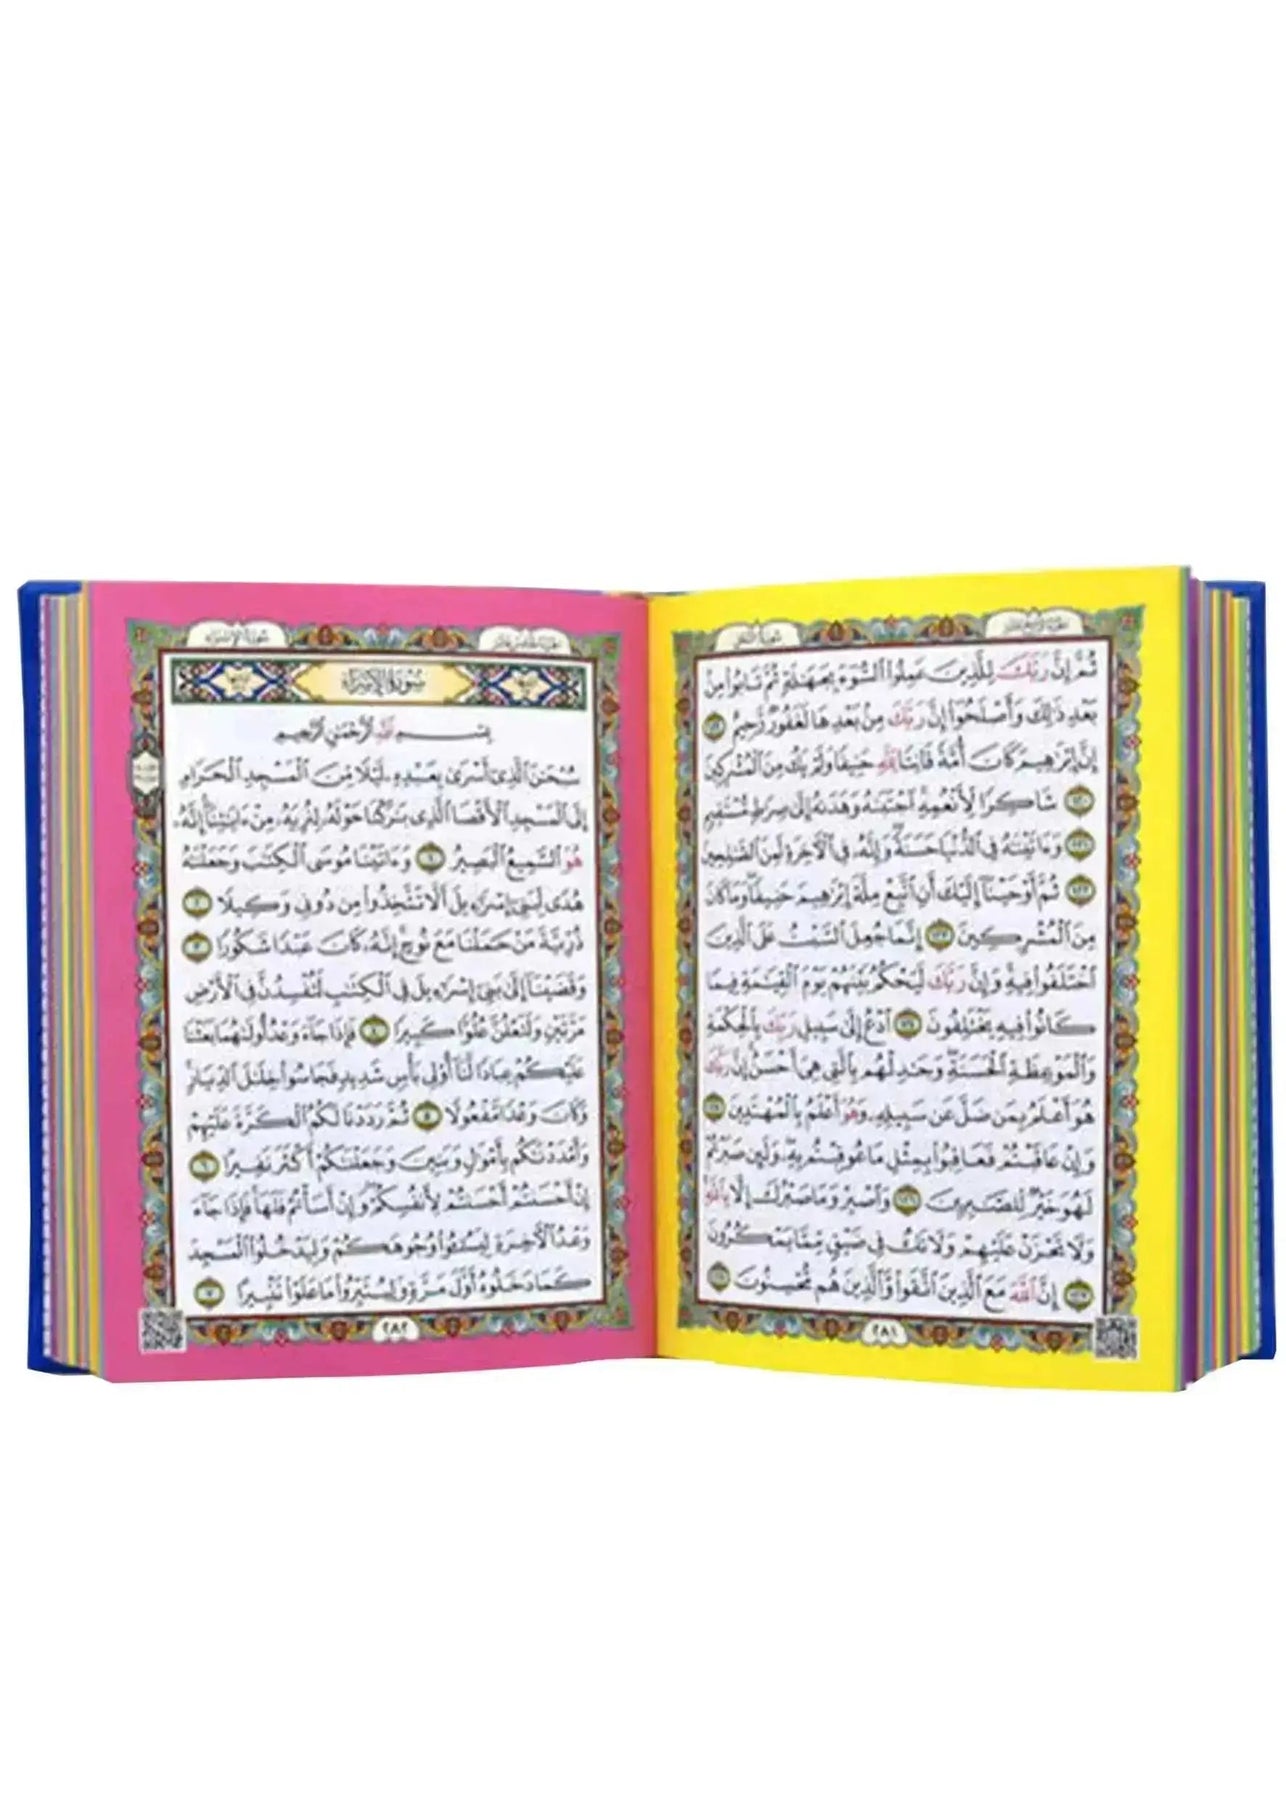 سورة النحل
ثُمَّ إِنَّ رَبَّكَ لِلَّذِينَ عَمِلُوا۟ ٱلسُّوٓءَ بِجَهَـٰلَةٍ ثُمَّ تَابُوا۟ مِنۢ
بَعْدِ ذَٰلِكَ وَأَصْلَحُوٓا۟ إِنَّ رَبَّكَ مِنۢ بَعْدِهَا لَغَفُورٌ رَّحِيمٌ ١١٩
إِنَّ إِبْرَٰهِيمَ كَانَ أُمَّةً قَانِتًا لِّلَّهِ حَنِيفًا وَلَمْ يَكُ مِنَ ٱلْمُشْرِكِينَ
١٢٠ شَاكِرًا لِّأَنْعُمِهِ ٱجْتَبَىٰهُ وَهَدَىٰهُ إِلَىٰ صِرَٰطٍ مُّسْتَقِيمٍ
١٢١ وَءَاتَيْنَـٰهُ فِى ٱلدُّنْيَا حَسَنَةً وَإِنَّهُۥ فِى ٱلْـَٔاخِرَةِ لَمِنَ ٱلصَّـٰلِحِينَ
١٢٢ ثُمَّ أَوْحَيْنَآ إِلَيْكَ أَنِ ٱتَّبِعْ مِلَّةَ إِبْرَٰهِيمَ حَنِيفًا وَمَا كَانَ
مِنَ ٱلْمُشْرِكِينَ ١٢٣ إِنَّمَا جُعِلَ ٱلسَّبْتُ عَلَى ٱلَّذِينَ
ٱخْتَلَفُوا۟ فِيهِ وَإِنَّ رَبَّكَ لَيَحْكُمُ بَيْنَهُمْ يَوْمَ ٱلْقِيَـٰمَةِ فِيمَا
كَانُوا۟ فِيهِ يَخْتَلِفُونَ ١٢٤ ٱدْعُ إِلَىٰ سَبِيلِ رَبِّكَ بِٱلْحِكْمَةِ
وَٱلْمَوْعِظَةِ ٱلْحَسَنَةِ وَجَـٰدِلْهُم بِٱلَّتِى هِىَ أَحْسَنُ إِنَّ رَبَّكَ
هُوَ أَعْلَمُ بِمَن ضَلَّ عَن سَبِيلِهِۦ وَهُوَ أَعْلَمُ بِٱلْمُهْتَدِينَ ١٢٥
وَإِنْ عَاقَبْتُمْ فَعَاقِبُوا۟ بِمِثْلِ مَا عُوقِبْتُم بِهِۦ وَلَئِن صَبَرْتُمْ
لَهُوَ خَيْرٌ لِّلصَّـٰبِرِينَ ١٢٦ وَٱصْبِرْ وَمَا صَبْرُكَ إِلَّا بِٱللَّهِ
وَلَا تَحْزَنْ عَلَيْهِمْ وَلَا تَكُ فِى ضَيْقٍ مِّمَّا يَمْكُرُونَ
١٢٧ إِنَّ ٱللَّهَ مَعَ ٱلَّذِينَ ٱتَّقَوا۟ وَّٱلَّذِينَ هُم مُّحْسِنُونَ ١٢٨
٢٨١
سورة الإسراء
سورة الإسراء
بِسْمِ ٱللَّهِ ٱلرَّحْمَـٰنِ ٱلرَّحِيمِ
سُبْحَـٰنَ ٱلَّذِىٓ أَسْرَىٰ بِعَبْدِهِۦ لَيْلًا مِّنَ ٱلْمَسْجِدِ ٱلْحَرَامِ
إِلَى ٱلْمَسْجِدِ ٱلْأَقْصَا ٱلَّذِى بَـٰرَكْنَا حَوْلَهُۥ لِنُرِيَهُۥ مِنْ ءَايَـٰتِنَآ إِنَّهُۥ
هُوَ ٱلسَّمِيعُ ٱلْبَصِيرُ ١ وَءَاتَيْنَا مُوسَى ٱلْكِتَـٰبَ وَجَعَلْنَـٰهُ
هُدًى لِّبَنِىٓ إِسْرَٰٓءِيلَ أَلَّا تَتَّخِذُوا۟ مِن دُونِى وَكِيلًا ٢
ذُرِّيَّةَ مَنْ حَمَلْنَا مَعَ نُوحٍ إِنَّهُۥ كَانَ عَبْدًا شَكُورًا ٣
وَقَضَيْنَآ إِلَىٰ بَنِىٓ إِسْرَٰٓءِيلَ فِى ٱلْكِتَـٰبِ لَتُفْسِدُنَّ فِى ٱلْأَرْضِ
مَرَّتَيْنِ وَلَتَعْلُنَّ عُلُوًّا كَبِيرًا ٤ فَإِذَا جَآءَ وَعْدُ أُولَىٰهُمَا بَعَثْنَا
عَلَيْكُمْ عِبَادًا لَّنَآ أُو۟لِى بَأْسٍ شَدِيدٍ فَجَاسُوا۟ خِلَـٰلَ ٱلدِّيَارِ
وَكَانَ وَعْدًا مَّفْعُولًا ٥ ثُمَّ رَدَدْنَا لَكُمُ ٱلْكَرَّةَ عَلَيْهِمْ
وَأَمْدَدْنَـٰكُم بِأَمْوَٰلٍ وَبَنِينَ وَجَعَلْنَـٰكُمْ أَكْثَرَ نَفِيرًا ٦
إِنْ أَحْسَنتُمْ أَحْسَنتُمْ لِأَنفُسِكُمْ وَإِنْ أَسَأْتُمْ فَلَهَا فَإِذَا جَآءَ
وَعْدُ ٱلْـَٔاخِرَةِ لِيَسُـۥٓـُٔوا۟ وُجُوهَكُمْ وَلِيَدْخُلُوا۟ ٱلْمَسْجِدَ
كَمَا دَخَلُوهُ أَوَّلَ مَرَّةٍ وَلِيُتَبِّرُوا۟ مَا عَلَوْا۟ تَتْبِيرًا ٧
٢٨٢